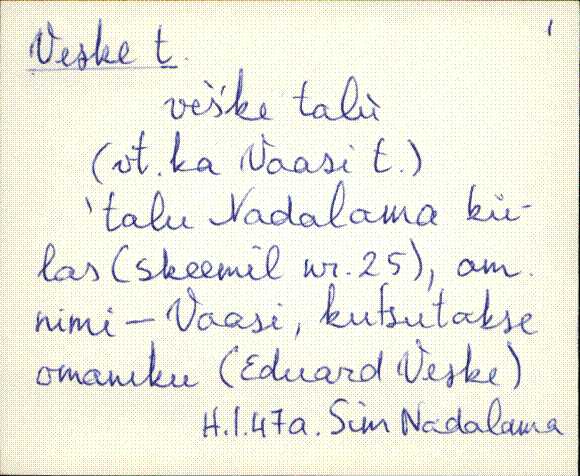 Veske t.
veske talu
(vt. ka Vaasi t.)
'talu Nadalama kü-
las (skeemil nr. 25), am.
nimi – Vaasi, kutsutakse
omaniku (Eduard Veske)
H.I.47a. Sim Nadalama